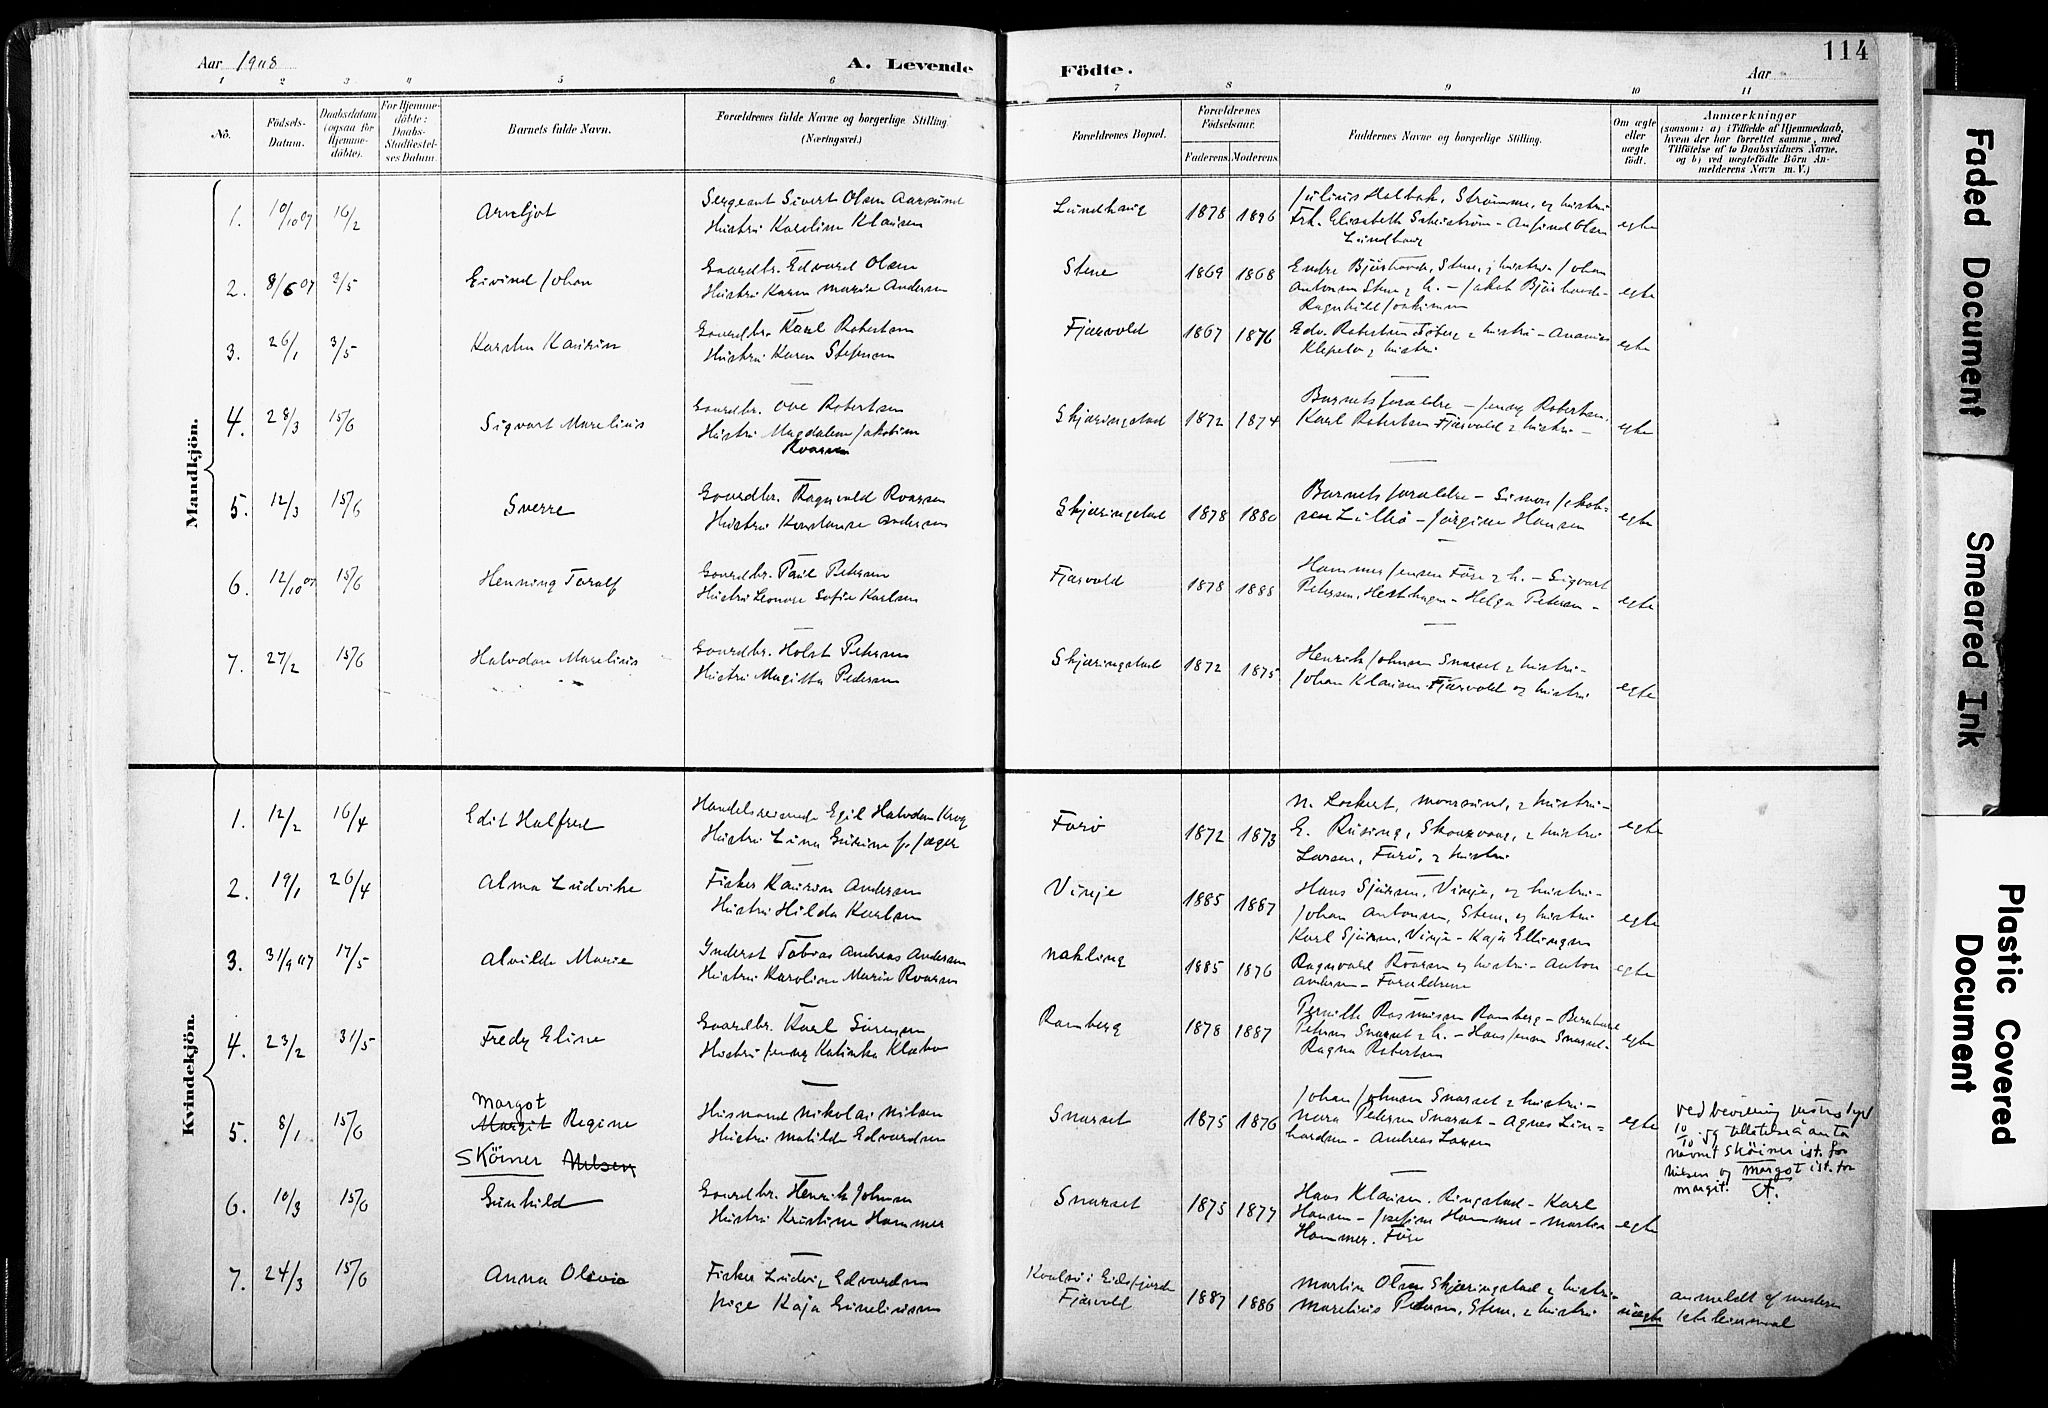 Aar 1908
A. Levende
Födte.
Aar
114
1 2 3 4 5 6 7 8 9 10 11
Nö.
Födsels-
Datum.
Daabsdatum
(ogsaa for
Hjemme-
döbte).
For Hjemme-
döbte:
Daabs-
Stadfæstel-
ses Datum.
Barnets fulde Navn.
Forældrenes fulde Navne og borgerlige Stilling
(Næringsvei.)
Forældrenes Bopæl.
Forældrenes
Födselsaar.
Faderens. Moderens.
Faddernes Navne og borgerlige Stilling.
Om ægte
eller
uægte
födt.
Anmærkninger
(saasom: a) i Tilfælde af Hjemmedaab,
hvem der har forrettet samme, med
Tilföielse af to Daabsvidners Navne.
og b) ved uægtefödte Börn An-
melderens Navn m. V.)
Mandkjön.
1. 10/10 07 16/2 Arnljot
Sergeant Sivert Olsen Aarsund
Hustru Karoline Klausen
Lundhaug 1878 1896
Julius Halbok, Strömme, og hustru
Frk. Elisabeth - Olsen
Lundhaug
egte
2. 8/6 07 3/5 Eivind Johan
Gaardbr. Edvard Olsen
Hustru Karen Marie Andersen
Stene 1869 1868
Endre Stene, hustru Johan
Antonsen Stene & h. - Jakob
Ragnhild Joakimsen
egte
3. 26/1 3/5 Karsten Kaurin
Gaardbr. Karl Robertsen
Hustru Karen Stefensen
Fjærvold 1867 1876
Edv. Robertsen & hustru - Ananias
Klepelv & hustru
egte
4. 28/3 15/6 Sigvart Marelius
Gaardbr. Ove Robertsen
Hustru Magdalene Jakobine
Roarsen
Skjæringstad 1872 1874
Barnets forældre - Jenny Robertsen.
Karl Robertsen Fjærvold & hustru -
egte
5. 12/3 15/6 Sverre
Gaardbr. Ragnvald Roarsen
Hustru Konstanse Andersen
Skjæringstad 1878 1880
Barnets forældre - Simon Jakob-
sen - Jörgine Hansen
egte
6. 12/10 07 15/6 Henning Toralf
Gaardbr. Paul Petersen
Hustru Leonore Sofie Karlsen
Fjærvold 1878 1885
Hammer Jensen Före & h. - Sigvart
Petersen, Hesthagen - Helga Petersen -
egte
7. 27/2 15/6 Halvdan Marelius
Gaardbr. Holst Petersen
Hustru Magitta Pedersen
Skjæringstad 1872 1875
Henrik Johnsen Snarset & hustru -
Johan Klausen Fjærvold og hustru
egte
Kvindekjön.
1. 12/2 16/4 Edit Halfred
Handelsreisende Egil Halvdan Krog
Hustru Lina Gurine f. Jæger
Forö 1872 1873
N. Lockert, Maarsund, & hustru -
E. Rusing, Skaarvaag, & hustru
Larsen, Forö, & hustru
egte
2. 19/1 26/4 Alma Ludvike
Fisker Kaurin Andersen
Hustru Hilda Karlsen
Vinje 1885 1887
Hans Sjursen, Vinje, og hustru -
Johan Antonsen, Stene, og hustru
Karl Sjursen, Vinje - Kaja Ellingsen
egte
3. 31/9 07 17/5 Alvilde Marie
Inderst Tobias Andreas Andersen
Hustru Karoline Marie Roarsen
Nakling 1885 1876
Ragnvald Roarsen og hustru - Anton
Andersen - Forældrene
egte
4. 23/2 31/5 Fredy Eline
Gaardbr. Karl Sörensen
Hustru Jenny Katinka Klæbo
Ramberg 1878 1887
Pernille Rasmussen Ramberg - Bernhard
Petersen Snarset & h. - Hans Jensen Snarset -
Ragna Robertsen
egte
5. 8/1 15/6 Margot
Margit Regine
SKöiner Nilsen
Husmand Nikolai Nilsen
Hustru Matilde Edvardsen
Snarset 1875 1876
Johan Johnsen Snarset & hustru -
Nora Petersen Snarset - Agnes Lin-
hardsen - Andreas Larsen
egte
ved bevilling
10/10 - 59 tillatelse å anta
navnet Sköiner ist. for
Nilsen og Margot ist. for
Margit.
6. 10/3 15/6 Gunhild
Gaardbr. Henrik Johnsen
Hustru Kristine Hammer
Snarset 1875 1877
Hans Klausen. Ringstad - Karl
Hansen - Josefine Hammer - Martin
Hammer. Före
egte
7. 24/3 15/6 Anna Olivia
Fisker Ludvig Edvardsen
Pige Kaja Eineliussen
Kvalsö i Eidsfjorden
Fjærvold 1887 1886
Martin Olsen Skjæringstad & hustru -
Marelius Petersen, Stene, & hustru
uægte
anmeldt af moderen
1ste leiermaal
Faded Document
Smeared Ink
Plastic Covered
Document